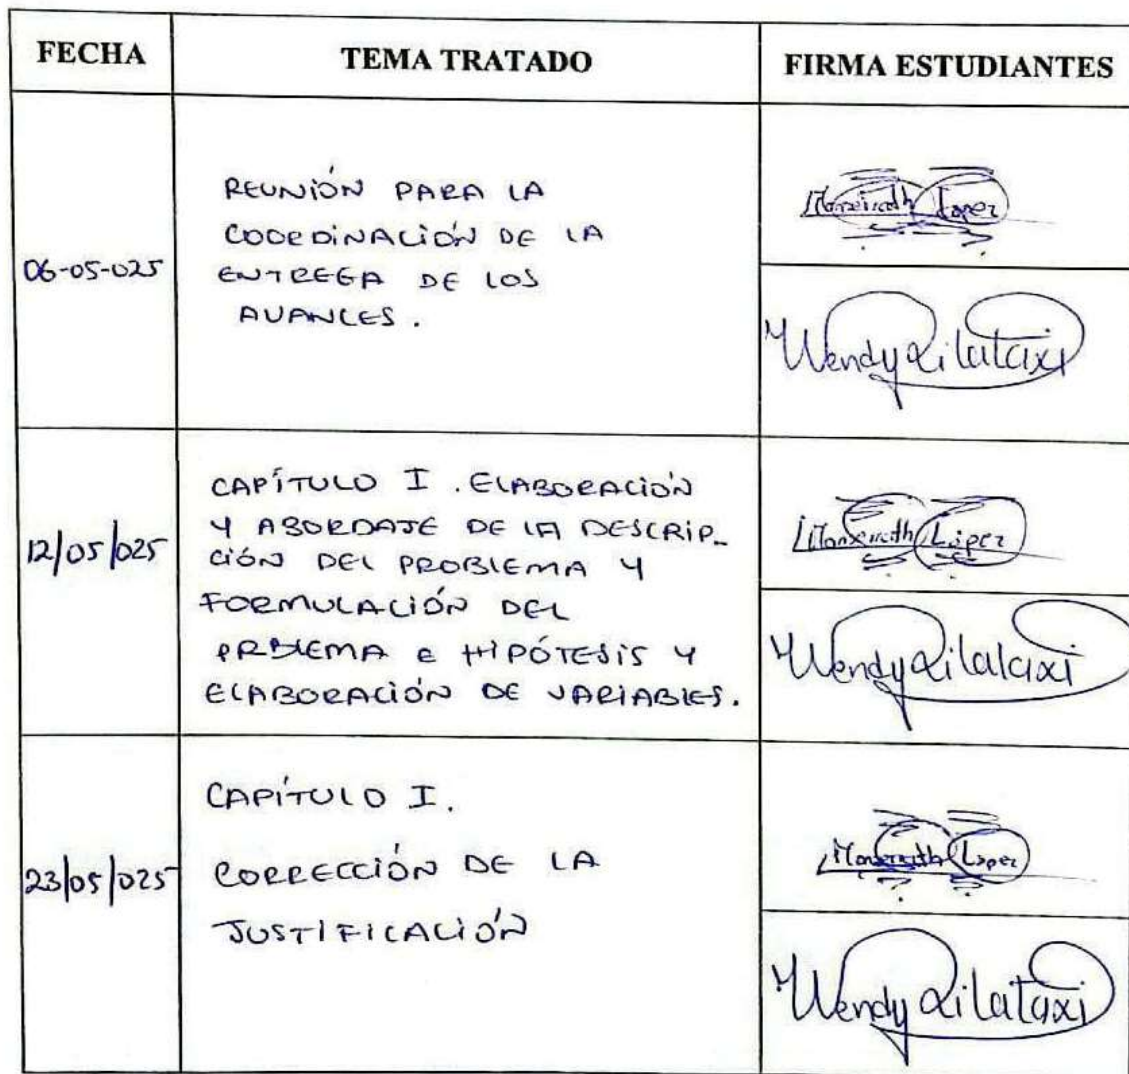 FECHA
TEMA TRATADO
FIRMA ESTUDIANTES
06-05-025
REUNIÓN PARA LA
COORDINACIÓN DE LA
ENTREGA DE LOS
AVANCES.
Monserrath López
Wendy Quilataxi
12/05/025
CAPÍTULO I. ELABORACIÓN
Y ABORDAJE DE LA DESCRIP-
CIÓN DEL PROBLEMA Y
FORMULACIÓN DEL
PRBLEMA e HIPÓTESIS Y
ELABORACIÓN DE VARIABLES.
López
Wendy
23/05/025
CAPÍTULO I.
CORRECCIÓN DE LA
JUSTIFICACIÓN
López
Wendy